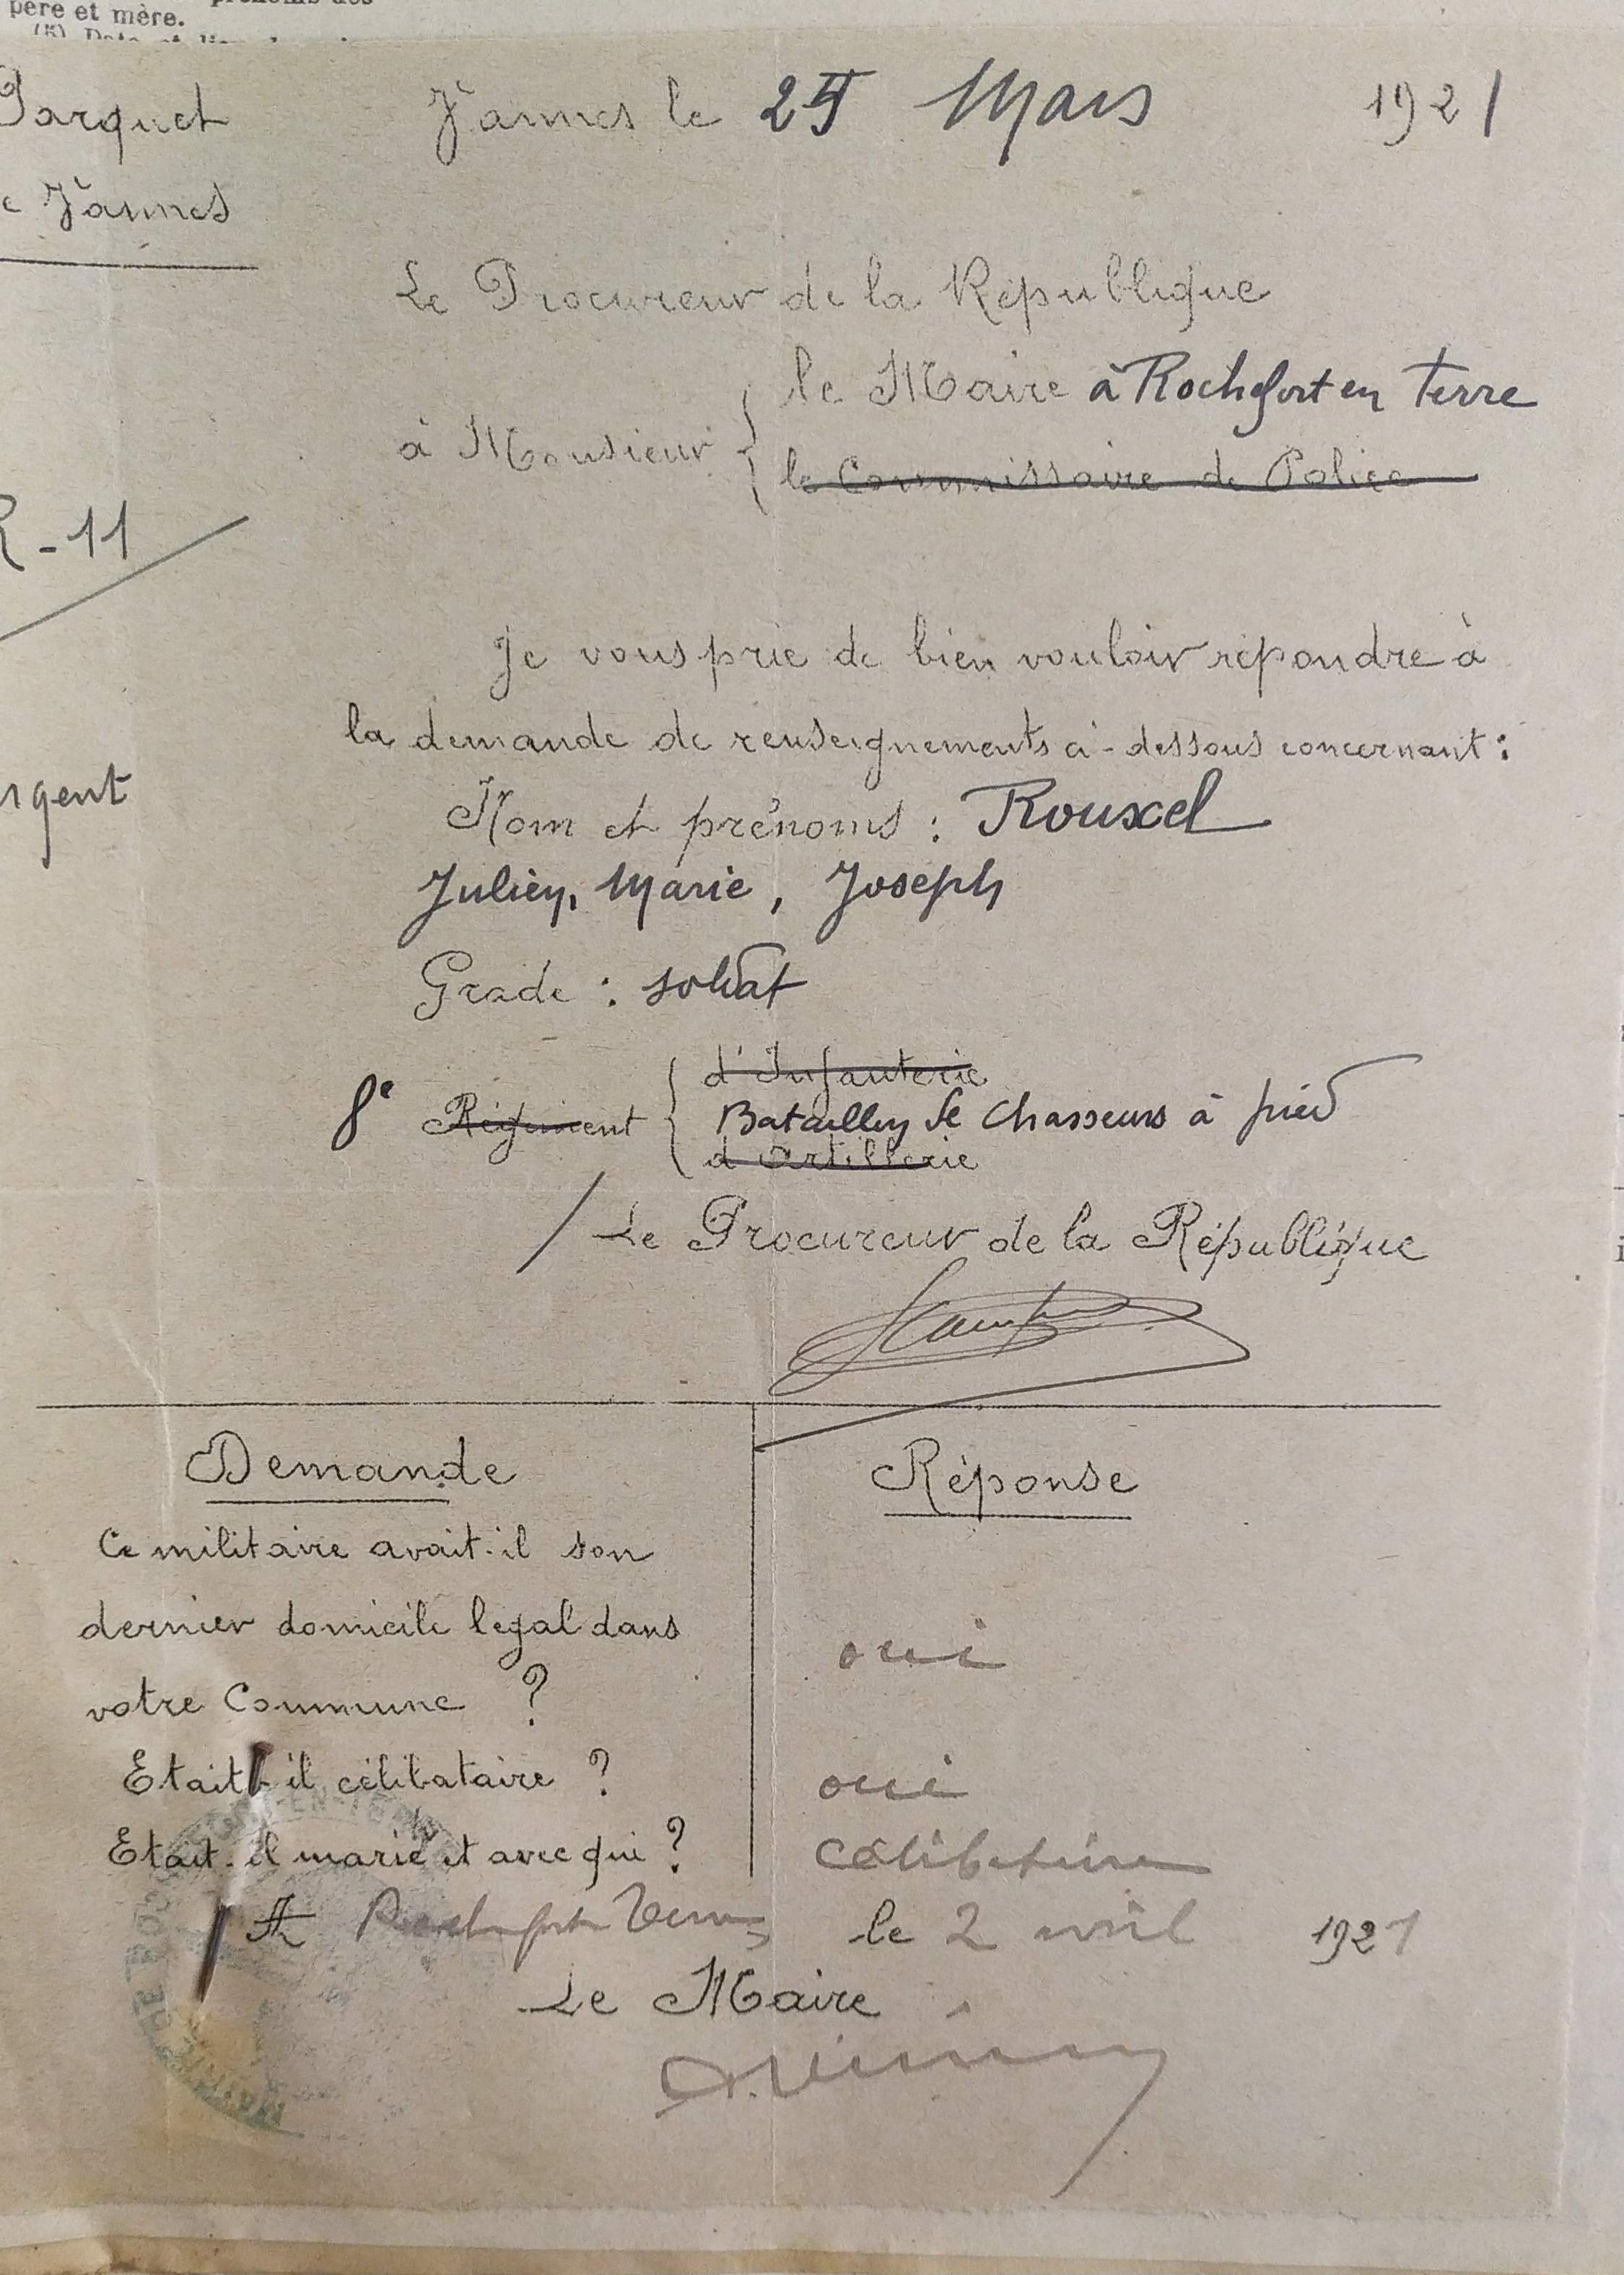 père et mère.
Parquet
Vannes le 25 Mars 1921
de Vannes
Le Procureur de la République
le Maire à Rochefort en Terre
à Monsieur
le Commissaire de Police
R-11
Je vous prie de bien vouloir répondre à
la demande de renseignements ci-dessous concernant :
urgent
Nom et prénoms : Rouxel
Julien, Marie, Joseph
Grade : soldat
d'Infanterie
8e Régiment Bataillon de Chasseurs à pied
d'Artillerie
/ Le Procureur de la République
Demande Réponse
Ce militaire avait-il son
dernier domicile légal dans
oui
votre Commune ?
Etait-il célibataire ? oui
Etait-il marié et avec qui ? célibataire
A Rochefort Terre le 2 avril 1921
Le Maire
MAIRIE DE ROCHEFORT-EN-TERRE